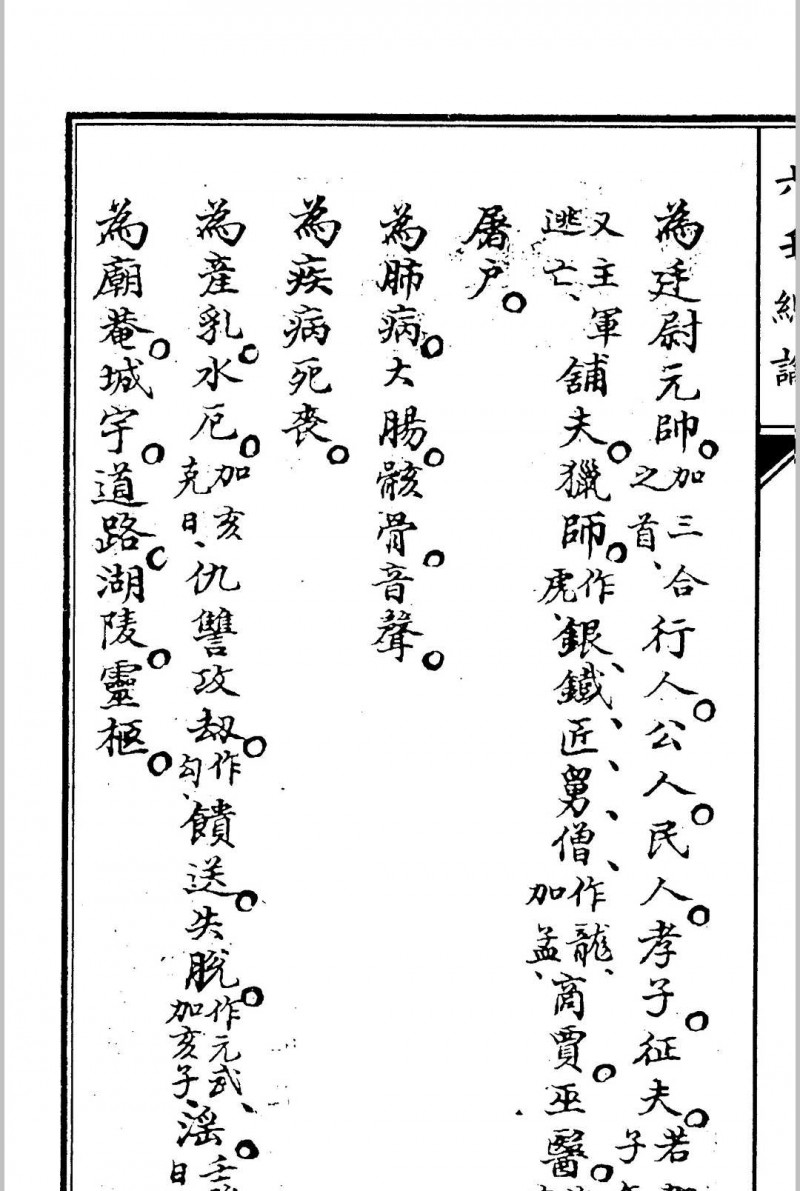 六壬總論
為廷尉元帥。加三合之首、行人。公人。民人。孝子。征夫。若
又主逃亡、軍舖夫。獵師。作虎、銀、鐵、匠、舅、僧、作龍、加孟、商賈。巫醫。
屠户。
為肺病。大腸。骸骨。音聲。
為疾病死喪。
為產乳。水厄。加亥克日、仇讐攻劫。作勾、饋送。失脫。作元武、加亥子、淫。
為廟菴。城宇。道路。湖陵。靈柩。